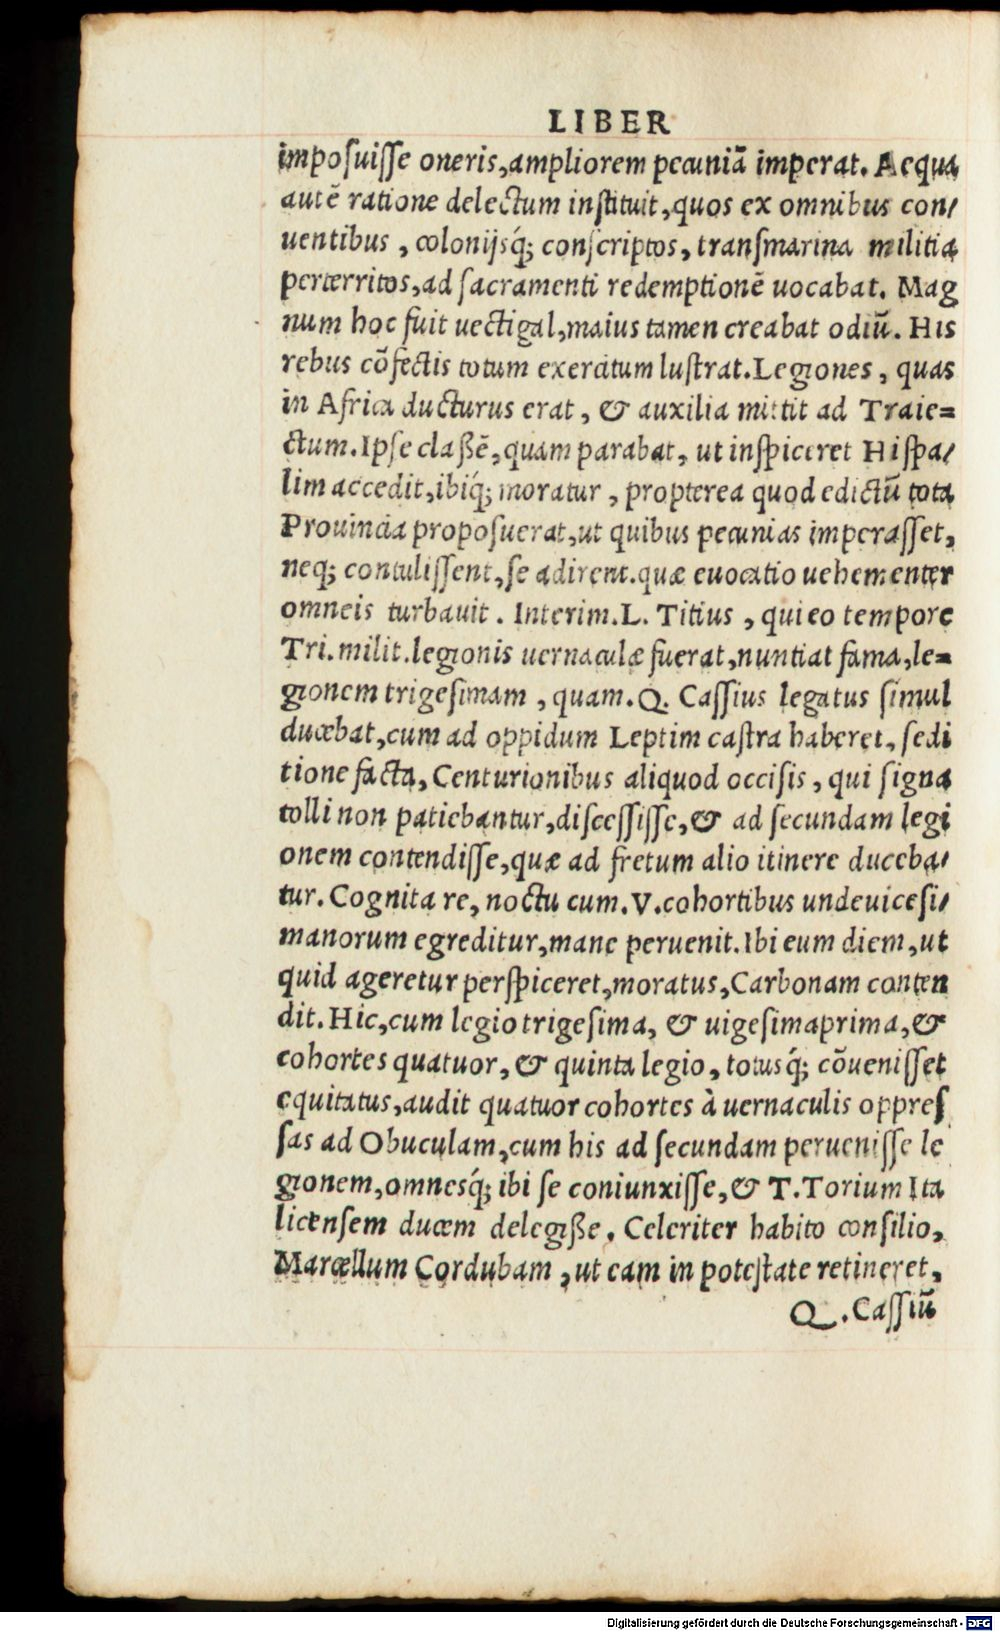 LIBER
imposuisse oneris,ampliorem pecuniã imperat. Aequa
autẽ ratione delectum instituit,quos ex omnibus con/
uentibus , colonijsq́; conscriptos, transmarina militia
perterritos,ad sacramenti redemptionẽ uocabat. Mag
num hoc fuit uectigal,maius tamen creabat odiũ. His
rebus cõfectis totum exercitum lustrat.Legiones, quas
in Africa ducturus erat, & auxilia mittit ad Traie=
ctum.Ipse claßẽ,quam parabat, ut inspiceret Hispa/
lim accedit,ibiq́; moratur, propterea quod edictũ tota
Prouincia proposuerat,ut quibus pecunias imperasset,
neq; contulissent,se adirent.quæ euocatio uehementer
omneis turbauit. Interim.L. Titius, qui eo tempore
Tri.milit.legionis uernaculæ fuerat,nuntiat fama,le=
gionem trigesimam, quam.Q. Cassius legatus simul
ducebat,cum ad oppidum Leptim castra haberet, sedi
tione facta, Centurionibus aliquod occisis, qui signa
tolli non patiebantur,discessisse,& ad secundam legi
onem contendisse,quæ ad fretum alio itinere duceba/
tur. Cognita re, noctu cum.V.cohortibus undeuicesi/
manorum egreditur,mane peruenit.Ibi eum diem,ut
quid ageretur perspiceret,moratus,Carbonam conten
dit.Hic,cum legio trigesima, & uigesimaprima,&
cohortes quatuor, & quinta legio, totusq́; cõuenisset
equitatus,audit quatuor cohortes à uernaculis oppres
sas ad Obuculam,cum his ad secundam peruenisse le
gionem,omnesq́; ibi se coniunxisse,& T.Torium Ita
licensem ducem delegiße. Celeriter habito consilio,
Marcellum Cordubam, ut eam in potestate retineret,
Q.Cassiũ
Digitalisierung gefördert durch die Deutsche Forschungsgemeinschaft - DFG